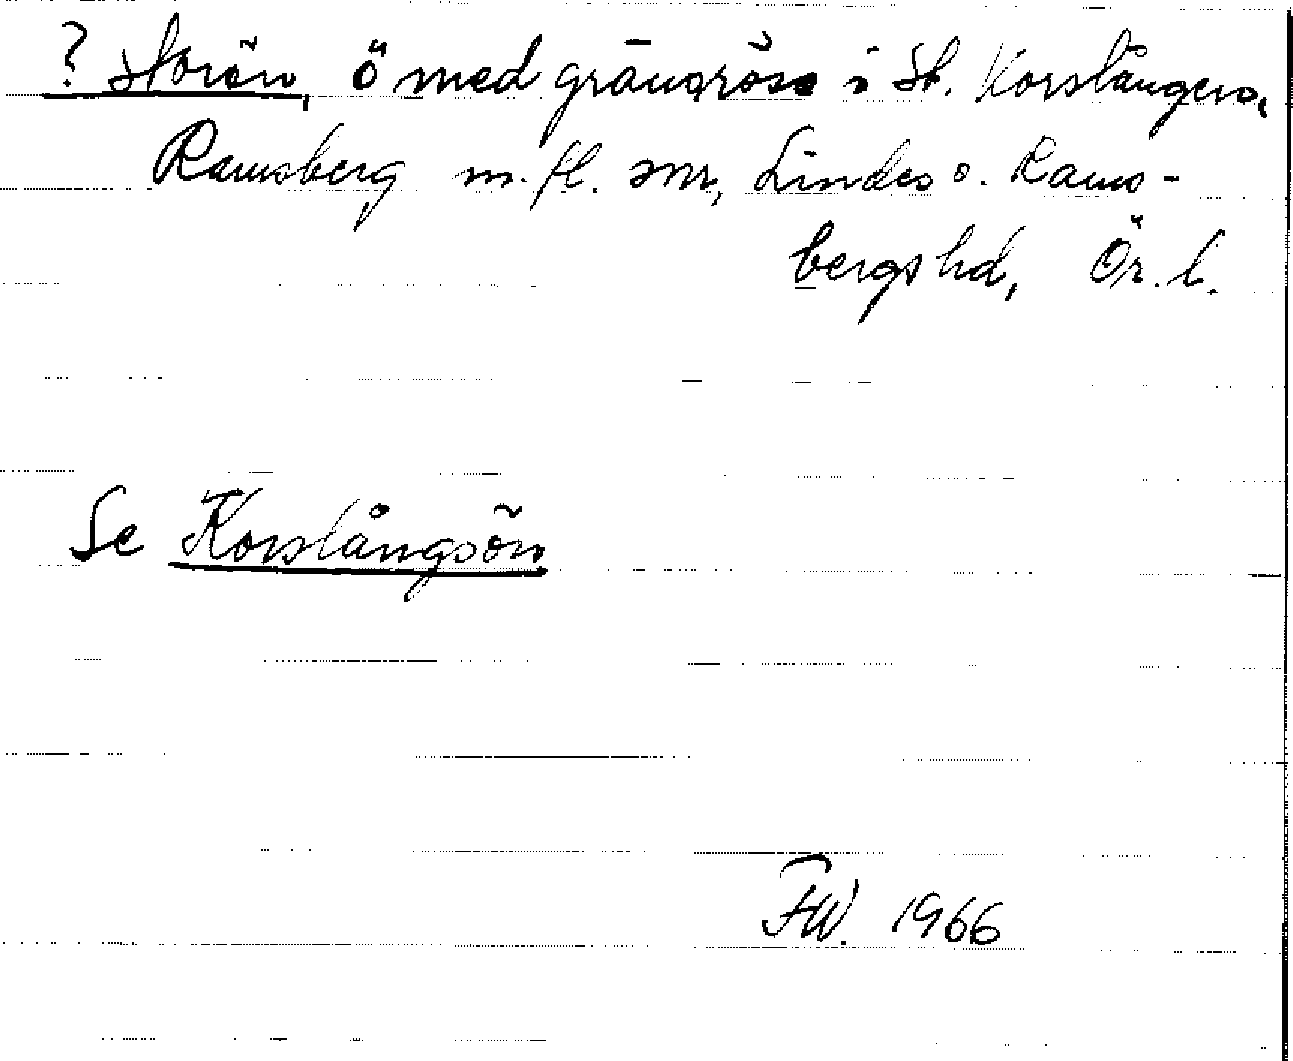 ? Storön, ö med gränsröse i St. Korslången,
Ramsberg m. fl. snr, Lindes o. Rams-
bergs hd, Ör. l.
Se Korslångsön
FW. 1966